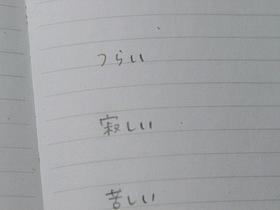 つらい
寂しい
苦しい